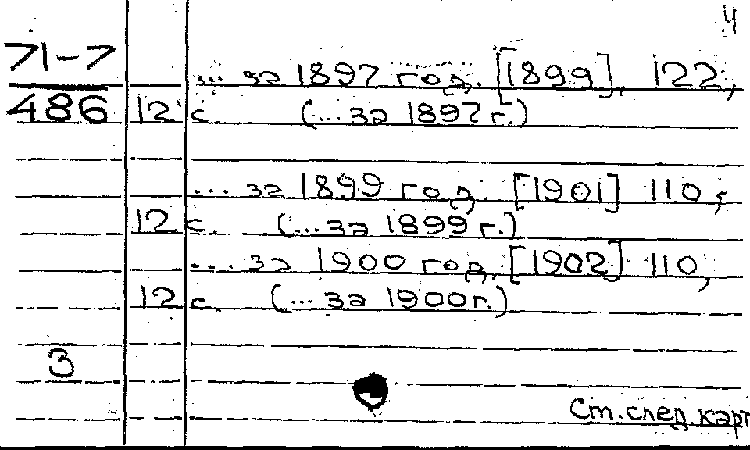 4
71-7
486
... за 1897 год. [1899]. 122,
12 с. (... за 1897 г.)
... за 1899 год. [1901] 110,
12 с. (... за 1899 г.)
... за 1900 год. [1902] 110,
12 с. (... за 1900г.)
3
См. след. карт